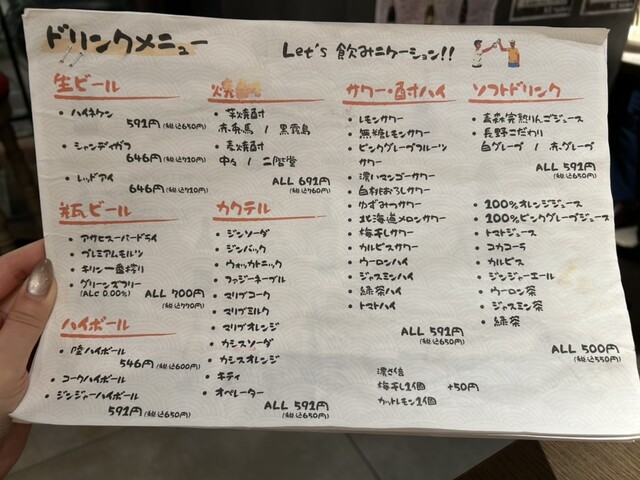 ドリンクメニュー
Let's 飲みニケーション!!
生ビール
・ハイネケン
591円(税込650円)
・シャンディガフ
646円(税込710円)
・レッドアイ
646円(税込710円)
瓶ビール
・アサヒスーパードライ
・プレミアムモルツ
・キリン一番搾り
・グリーンズフリー
(ALC 0.00%)
ALL 700円
(税込770円)
ハイボール
・陸ハイボール
546円(税込600円)
・コークハイボール
・ジンジャーハイボール
591円(税込650円)
焼酎
・芋焼酎
赤兎馬 / 黒霧島
・麦焼酎
中々 / 二階堂
ALL 691円
(税込760円)
カクテル
・ジンソーダ
・ジンバック
・ウォッカトニック
・ファジーネーブル
・マリブコーク
・マリブミルク
・マリブオレンジ
・カシスソーダ
・カシスオレンジ
・キティ
・オペレーター
ALL 591円
(税込650円)
サワー・酎ハイ
・レモンサワー
・無糖レモンサワー
・ピンクグレープフルーツ
サワー
・濃いマンゴーサワー
・白桃おろしサワー
・ゆずみつサワー
・北海道メロンサワー
・梅干しサワー
・カルピスサワー
・ウーロンハイ
・ジャスミンハイ
・緑茶ハイ
・トマトハイ
ALL 591円
(税込650円)
濃さ倍
梅干し1個 +50円
カットレモン1個
ソフトドリンク
・青森完熟りんごジュース
・長野こだわり
白グレープ / 赤グレープ
ALL 591円
(税込650円)
・100%オレンジジュース
・100%ピンクグレープジュース
・トマトジュース
・コカコーラ
・カルピス
・ジンジャーエール
・ウーロン茶
・ジャスミン茶
・緑茶
ALL 500円
(税込550円)